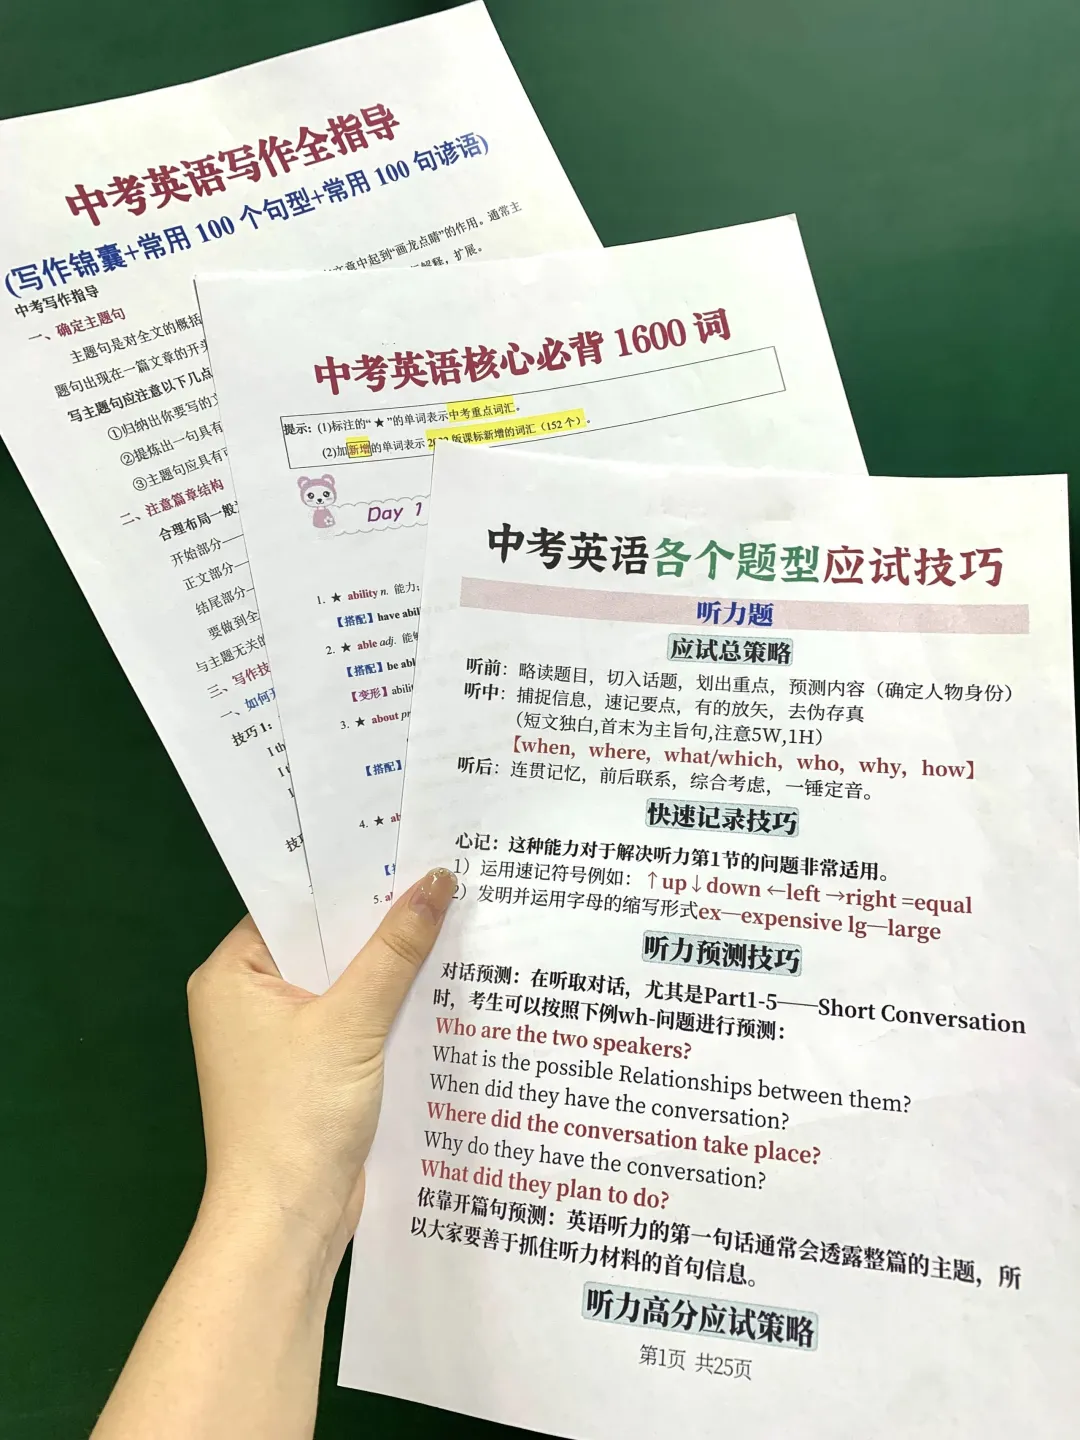 中考英语写作全指导
(写作锦囊+常用 100 个句型+常用 100 句谚语)
中考写作指导
一、确定主题句
主题句是对全文的概括
文章中起到“画龙点睛”的作用。通常主
题句出现在一篇文章的开头
解释，扩展。
写主题句应注意以下几点
①归纳出你要写的文
②提炼出一句具有
③主题句应具有可
二、注意篇章结构
合理布局一般
开始部分—
正文部分—
结尾部分—
要做到全
与主题无关的
三、写作技
一、如何开
技巧 1:
I th
I t
I
技巧
中考英语核心必背 1600 词
提示: (1)标注的“ ★ ”的单词表示中考重点词汇。
(2)加新增的单词表示 2022 版课标新增的词汇（152 个）。
Day 1
1. ★ ability n. 能力;
【搭配】have abil
2. ★ able adj. 能够
【搭配】be abl
【变形】abili
3. ★ about pr
【搭配】
4. ★ ab
5. a
中考英语各个题型应试技巧
听力题
应试总策略
听前：略读题目，切入话题，划出重点，预测内容（确定人物身份）
听中：捕捉信息，速记要点，有的放矢，去伪存真
（短文独白,首末为主旨句,注意5W,1H）
【when, where, what/which, who, why, how】
听后：连贯记忆，前后联系，综合考虑，一锤定音。
快速记录技巧
心记：这种能力对于解决听力第1节的问题非常适用。
1）运用速记符号例如：↑up↓down ←left →right =equal
2）发明并运用字母的缩写形式ex—expensive lg—large
听力预测技巧
对话预测：在听取对话，尤其是Part1-5——Short Conversation
时，考生可以按照下例wh-问题进行预测：
Who are the two speakers?
What is the possible Relationships between them?
When did they have the conversation?
Where did the conversation take place?
Why do they have the conversation?
What did they plan to do?
依靠开篇句预测：英语听力的第一句话通常会透露整篇的主题，所
以大家要善于抓住听力材料的首句信息。
听力高分应试策略
第1页 共25页